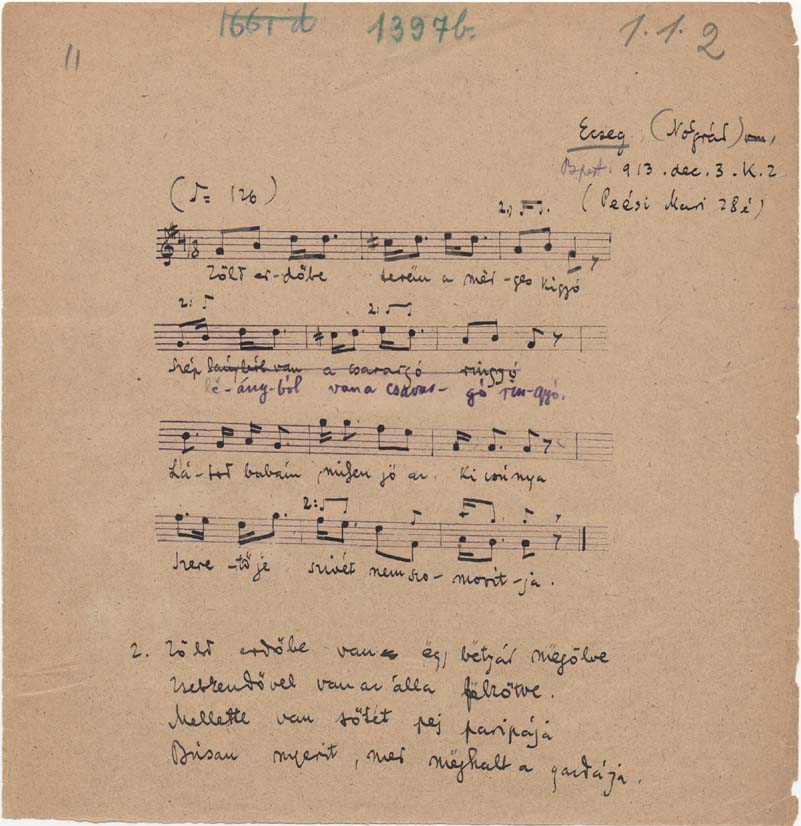 1661 d 1397b. 1.1.2
11
Ecseg, (Nógrád)
Bpest. 913. dec. 3. K. 2
(♪= 126) (Pécsi Mari 28 é)
2.,
Zöld er-dőbe terëm a mér-ges kigyó
2: 2:
Szép van a csavargó ringyó
lë-ány-ból van a csavar-gó rin-gyó.
Lá-tod babám, milyen jó az. Ki csúnya
2:
Szere-tőjе szivét nem szo-morít-ja.
2. Zöld erdőbe van ëgy bëtyár mëgölve
Zsebkendővel van az álla fëlkötve.
Mellette van sötét pej paripája
Búsan nyerit, mer mëghalt a gazdája.